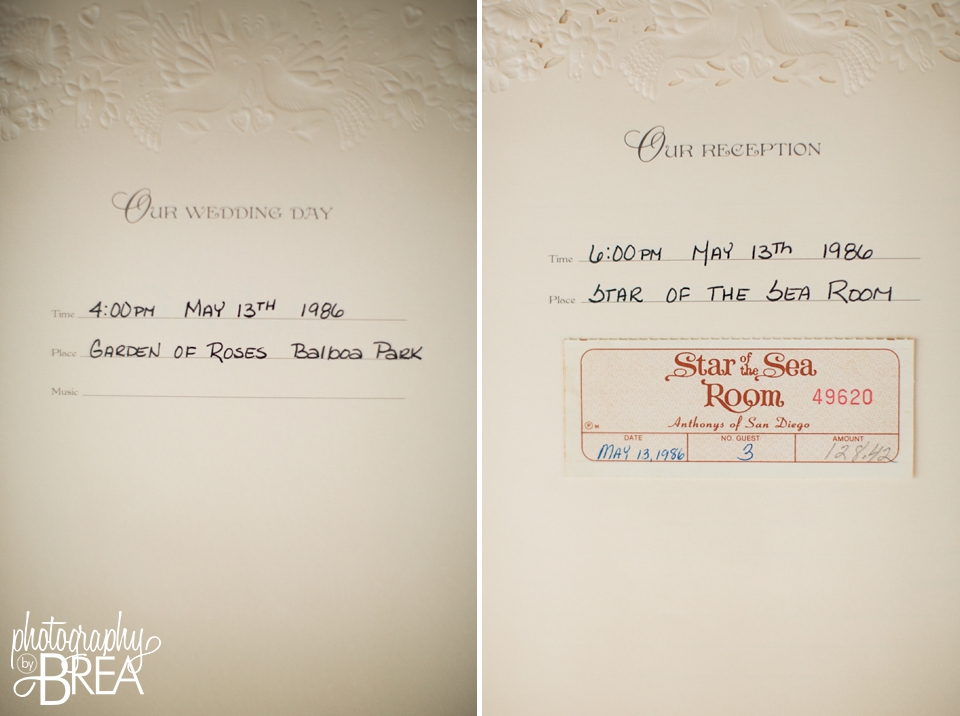 OUR WEDDING DAY
Time 4:00PM MAY 13TH 1986
Place GARDEN OF ROSES Balboa Park
Music
photography
by
BREA
OUR RECEPTION
Time 6:00PM MAY 13Th 1986
Place STAR OF THE SEA ROOM
Star of the Sea
Room 49620
Anthonys of San Diego
DATE NO. GUEST AMOUNT
MAY 13, 1986 3 128.42